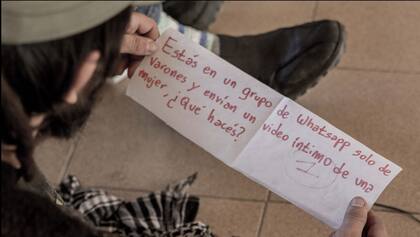 Estás en un grupo de Whatsapp solo de
Varones y envían un video íntimo de una
mujer, ¿Qué hacés?
1